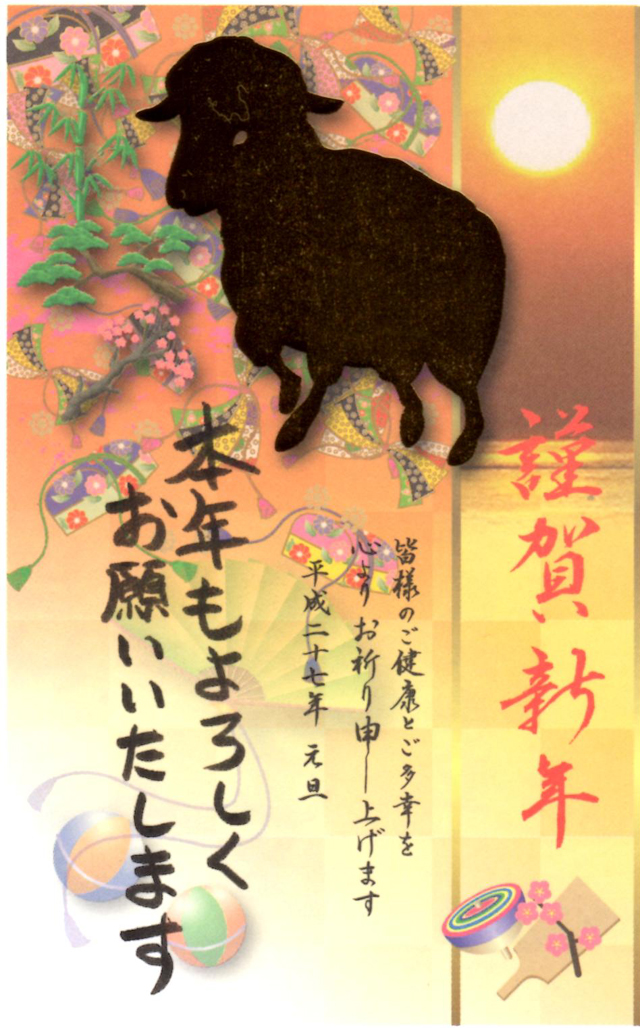 謹賀新年
皆様のご健康とご多幸を
心よりお祈り申し上げます
平成二十七年 元旦
本年もよろしく
お願いいたします